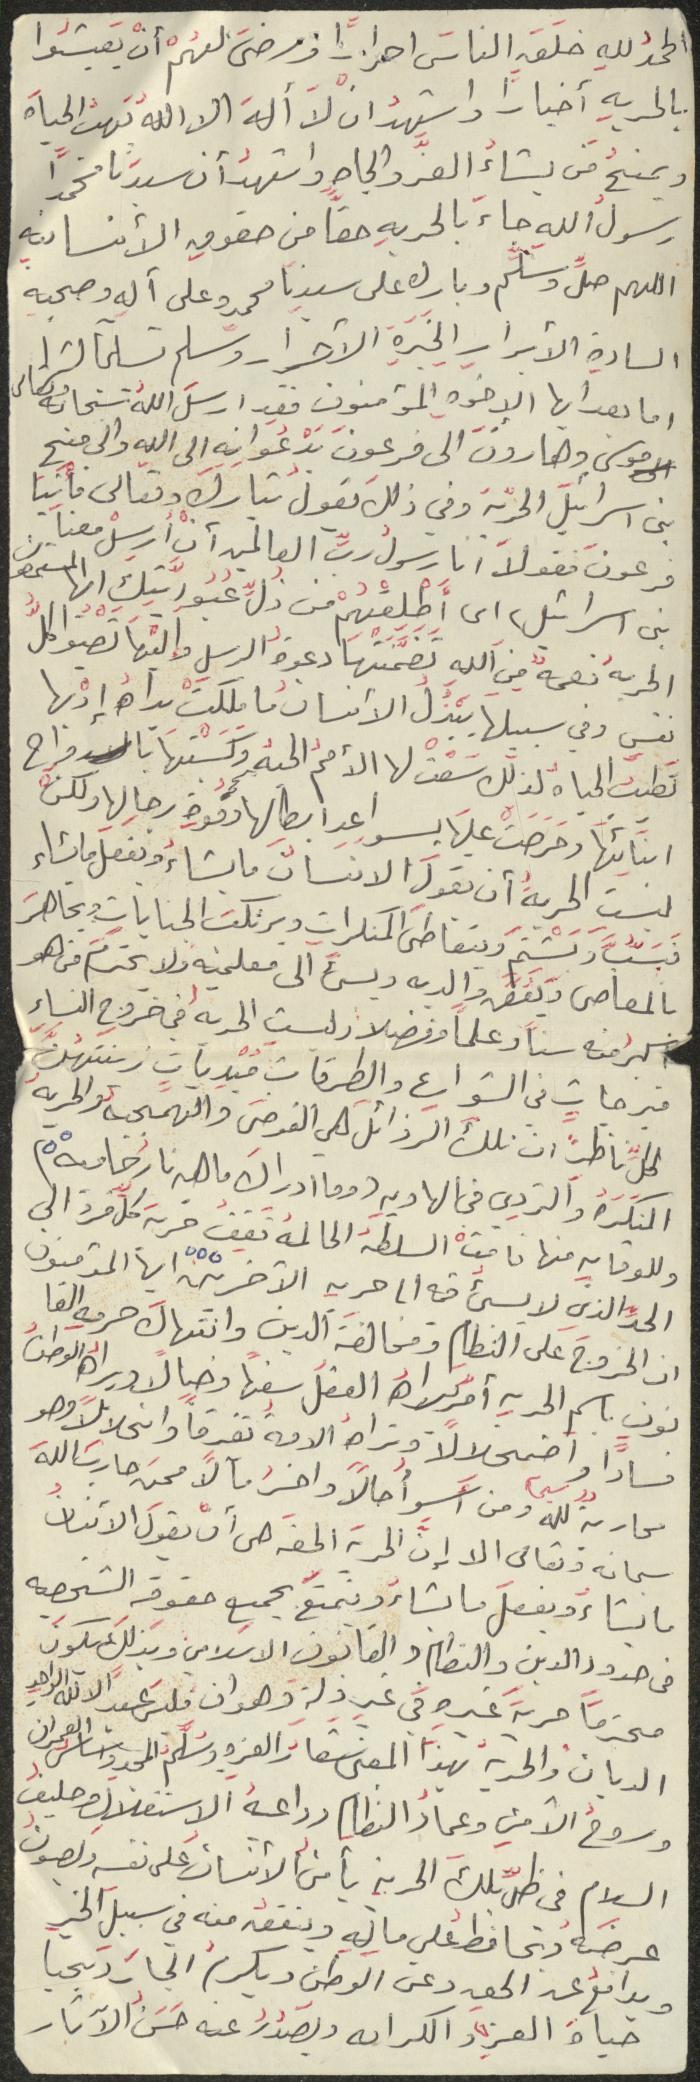 الحمدُ للهِ خلقَ الناسَ احرارًا وفرضَ لهُمْ أنْ يعيشُوا
بالحريهِ أخيارًا واشهدُ انْ لا ألهَ الا اللهُ يَهبُ الحياةَ
ويمنحُ مَن يشاءُ العزَّ والجاهَ واشهدُ أن سيدَنا محمدًا
رسولُ اللهِ جاءَ بالحريهِ حقًا من حقوقِ الأنسانيهِ
اللهم صلِّ وسلِّم وبارك على سيدِنا محمدٍ وعلى آلهِ وصحبهِ
السادةِ الأبرارِ الخيَرَةِ الأحرارِ وسلم تسليمًا كثيرًا
اما بعد ايها الإخوه المؤمنون فقد ارسلَ اللهُ سبحانهُ وتعالى
موسى وهارونَ الى فرعونَ يَدْعُوانِهِ الى اللهِ والى منحِ
بني اسرائيلَ الحريّة وفي ذلكَ يقولُ تباركَ وتعالى فأتِيَا
فرعونَ فقولاَ انا رسولُ ربِّ العالمينَ أنْ أرسِلْ معنا
بني اسرائيل، اى أَطْلِقْهُمْ من ذُلِّ عُبُوديّتِكَ ايها المستمعون
الحريهُ نعمةٌ مِنَ اللهِ تضمَّنَتْهَا دعوةُ الرسلِ وإليْهَا تَصْبُوا كلُّ
نفسٍ وفي سبيلِها يَبْذُلُ الأنسانُ ما ملكَتْ يداهُ إذْ بها
تَطِيبُ الحياةُ لذلكَ سَعَتْ لها الأممُ الحيّهُ وكَسَبَتْهَا بأرواحِ
ابنائِهَا وحَرَصَتْ عليها بسواعِدِ ابطالِها وقوةِ رجالِها ولكنْ
ليست الحريةُ أن يقولَ الانسانُ ما يشاءُ ويفعلَ ما يشاء
فيَسُبَّ ويَشْتِمَ ويتعاطَى المنكراتِ ويرتكبَ الجناياتِ ويجاهرَ
بالمعاصى ويَعُقَّ والديه ويسئَ الى معلميهِ ولا يحترمَ من هو
اكبرُ منه سنًا وعلمًا وفضلا وليستِ الحريهُ في خروجِ النساءِ
متبرجاتٍ في الشوارعِ والطرقاتِ مُبْدِياتٍ زينتَهُنَّ
لكلِّ ناظرٍ ان تلكَ الرذائلَ هي الفوضَى والهمجيهُ والحريهُ
المنكَرَهُ والتردي في الهاويهِ (وما ادراكَ ماهيه نارٌ حاميه)
وللوقايهِ منها قامَتْ السلطةُ الحاكمهُ تقفُ حريةَ كلِّ فردٍ الى
الحدِّ الذي لا يسئُ فيه الى حريهِ الآخرين ايها المؤمنون
ان الخروجَ على النظامِ ومخالفةَ الدينِ وانتهاكَ حرمهِ القا
نونِ باسمِ الحريهِ أمرٌ يراهُ العقلُ سفهًا وخبالًا ويراهُ الوطنُ
فسادًا واضمحلالًا وتراهُ الامهُ تفرقًا وانحلالًا وهو
محاربةٌ للهِ ومن أسوأُ حالًا واخسرُ مآلًا ممن حاربَ اللهَ
سبحانه وتعالى الا إنَّ الحريةَ الحقه هى أنْ يقولَ الأنسانُ
ما يشاءُ ويفعلَ ما يشاءُ ويتمتعَ بجميعِ حقوقِهِ الشخصيه
فى حدودِ الدين والنظامِ والقانونِ الاسلامي وبذلكَ يكونُ
محترمًا حريةَ غيرهِ في غيرِ ذلةٍ وهوانٍ فليسَ عبدًا الا للهِ الواحدِ
الديان والحريةُ بهذا المعنى شعارُ العزهِ وسُلَّمُ المجدِ واساسُ العمران
وروحُ الأمنِ وعمادُ النظامِ وداعيةُ الاستقلالِ وحليفُ
السلام فى ظلِّ تلكَ الحريةِ يأمنُ الأنسانُ على نفسهِ ويصونُ
عرضَهُ ويحافظُ على مالِهِ وينفقهُ منه في سبيلِ الخيرِ
ويدافعُ عن الحقِ وعن الوطنِ ويكرمُ الجارَ ويحيا
حياةَ العزةِ والكرامه ويصدُرُ عنه حَسَنُ الآثار